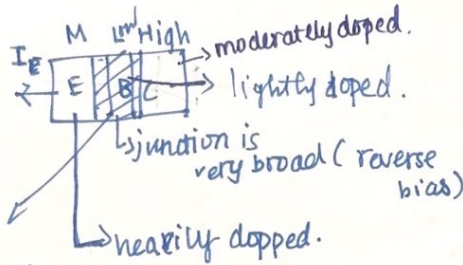 M Low High
→ moderately doped.
I_E
E B C
→ lightly doped.
↳ junction is
very broad (reverse
bias)
→ heavily dopped.